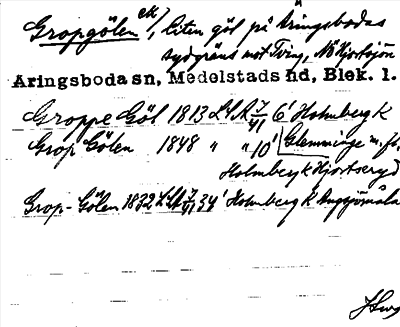 Gropgölen ek/, liten göl på Åringsbodas
sydgräns mot Tving, NÖ Hjortsjön
Åringsboda sn, Medelstads hd, Blek. l.
Groppe Göl 1813 LSA 7/41 6' Holmberg k
Grop Gölen 1848 " " 10' Glemminge m. fl.
Holmberg k Hjortseryd
Grop-Gölen 1832 LSA 7/41 34' Holmberg k